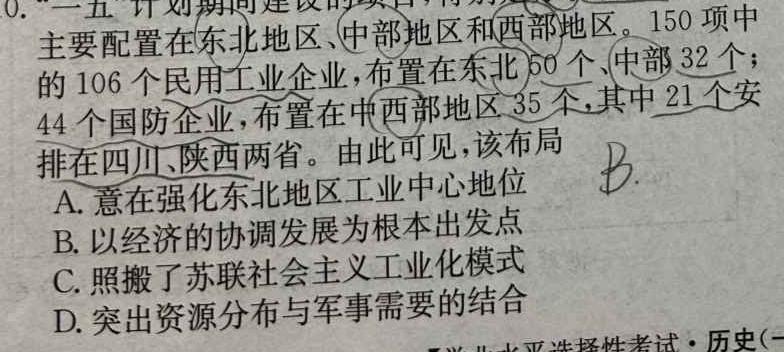 0. “一五”计划期间建设的项目,
主要配置在东北地区、中部地区和西部地区。150 项中
的 106 个民用工业企业,布置在东北 50 个、中部 32 个;
44 个国防企业,布置在中西部地区 35 个,其中 21 个安
排在四川、陕西两省。由此可见,该布局
B.
A. 意在强化东北地区工业中心地位
B. 以经济的协调发展为根本出发点
C. 照搬了苏联社会主义工业化模式
D. 突出资源分布与军事需要的结合
水平选择性考试·历史(一